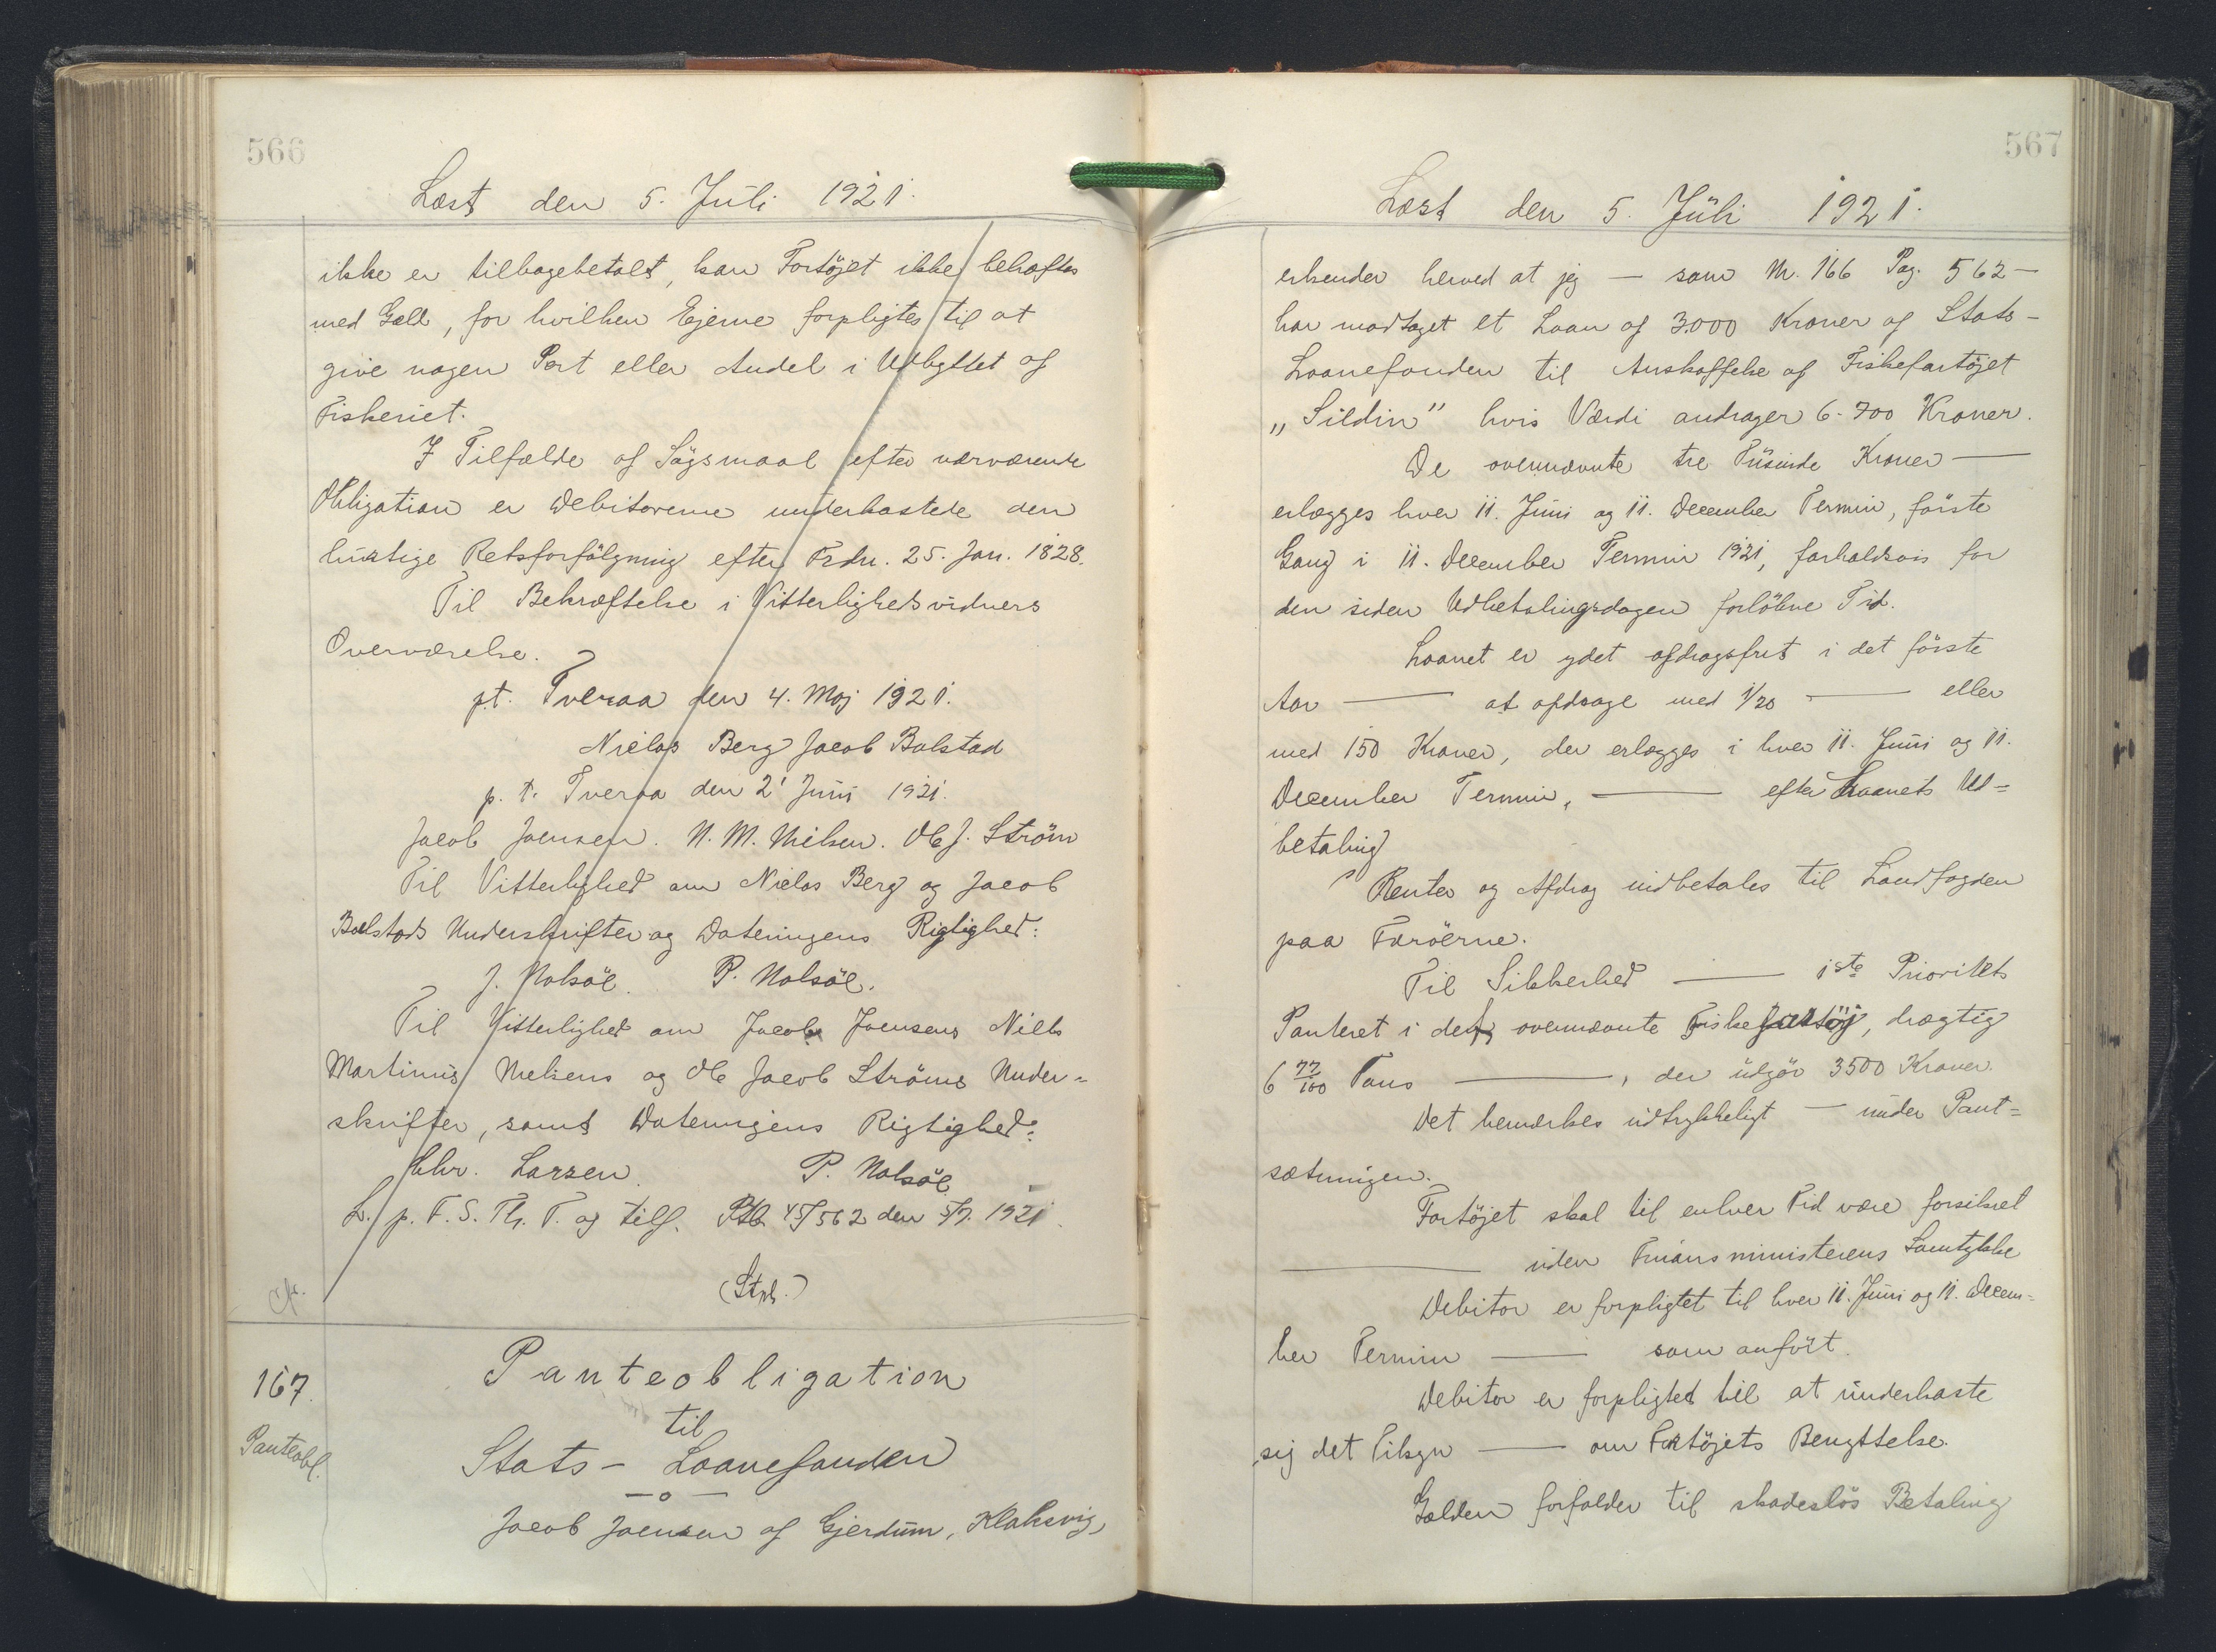 566
Læst den 5. Juli 1921.
ikke er tilbagebetalt, kan Fartöjet ikke behæftes
med Gæld, for hvilken Ejerne forpligtes til at
give nogen Part eller Andel i Udbyttet af
Fiskeriet.
I Tilfælde af Sögsmaal efter nærværende
Obligation er Debitorerne underkastede den
hurtige Retsforfölgning efter Frdn. 25. Jan. 1828.
Til Bekræftelse i Vitterlighedsvidners
Overværelse.
pt. Tveraa den 4. Maj 1921.
Niclas Berg Jacob Balstad
p. t. Tveraa den 2' Juni 1921.
Jacob Joensen. N. M. Nielsen. Ole J. Ström
Til Vitterlighed om Niclas Berg og Jacob
Balstads Underskrifter og Dateringens Rigtighed:
J. Nolsöe. P. Nolsöe.
Til Vitterlighed om Jacob Joensens Niels
Martinus Nielsens og Ole Jacob Ströms Under-
skrifter, samt Dateringens Rigtighed:
Chr. Larsen. P. Nolsöe
L. p. F. S. Th. T. og tilf. Ptb. 45/562 den 5/7. 1921.
(Stpl.)
167.
Panteobl.
Panteobligation
til
Stats- Laanefonden
—o—
Jacob Joensen af Gjerdum, Klaksvig,
567
Læst den 5. Juli 1921.
erkender herved at jeg — som Nr. 166 Pag. 562 —
har modtaget et Laan af 3000 Kroner af Stats-
Laanefonden til Anskaffelse af Fiskefartöjet
„Sildin" hvis Værdi andrager 6-700 Kroner.
De ovennævnte tre Tusinde Kroner —
erlægges hver 11. Juni og 11. December Termin, förste
Gang i 11. December Termin 1921, forholdsvis for
den siden Udbetalingsdagen forlöbne Tid.
Laanet er ydet afdragsfrit i det förste
Aar — at afdrage med 1/20 — eller
med 150 Kroner, der erlægges i hver 11. Juni og 11.
December Termin, — efter Laanets Ud=
betaling
Renter og Afdrag indbetales til Landfogden
paa Færöerne.
Til Sikkerhed — 1ste Prioritets
Panteret i det ovennævnte Fiskefartöj, drægtig
6 77/100 Tons —, der udgör 3500 Kroner.
Det bemærkes udtrykkeligt — under Pant=
sætningen.
Fartöjet skal til enhver Tid være forsikret
— uden Finansministerens Samtykke
Debitor er forpligtet til hver 11. Juni og 11. Decem=
ber Termin — som anfört.
Debitor er forpligtet til at underkaste
sig det Tilsyn — om Fartöjets Benyttelse.
Gælden forfalder til skadeslös Betaling